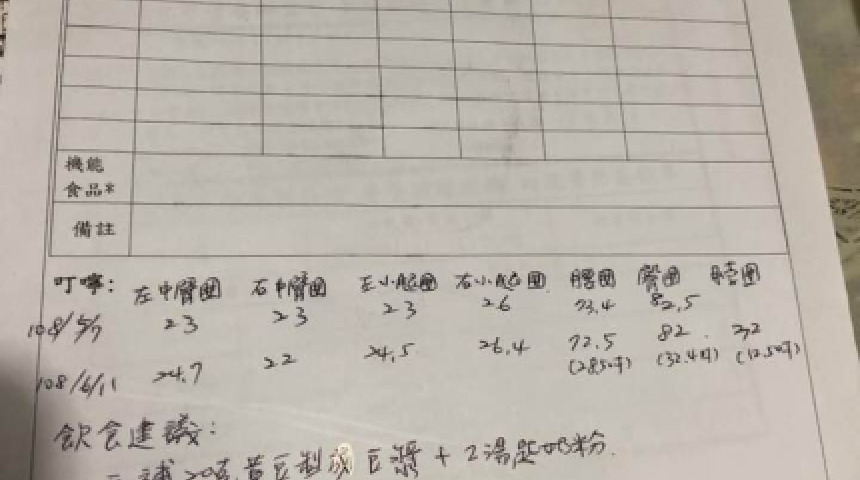 機能
食品*
備註
叮嚀: 左中臂圍 右中臂圍 左小腿圍 右小腿圍 腰圍 臀圍
108/5/7 23 23 23 26 73.4 82.5
108/6/11 24.7 22 24.5 26.4 72.5 82 32
(28.5吋) (32.4吋) (12.5吋)
飲食建議:
補20克黃豆製成豆漿 + 2湯匙奶粉.